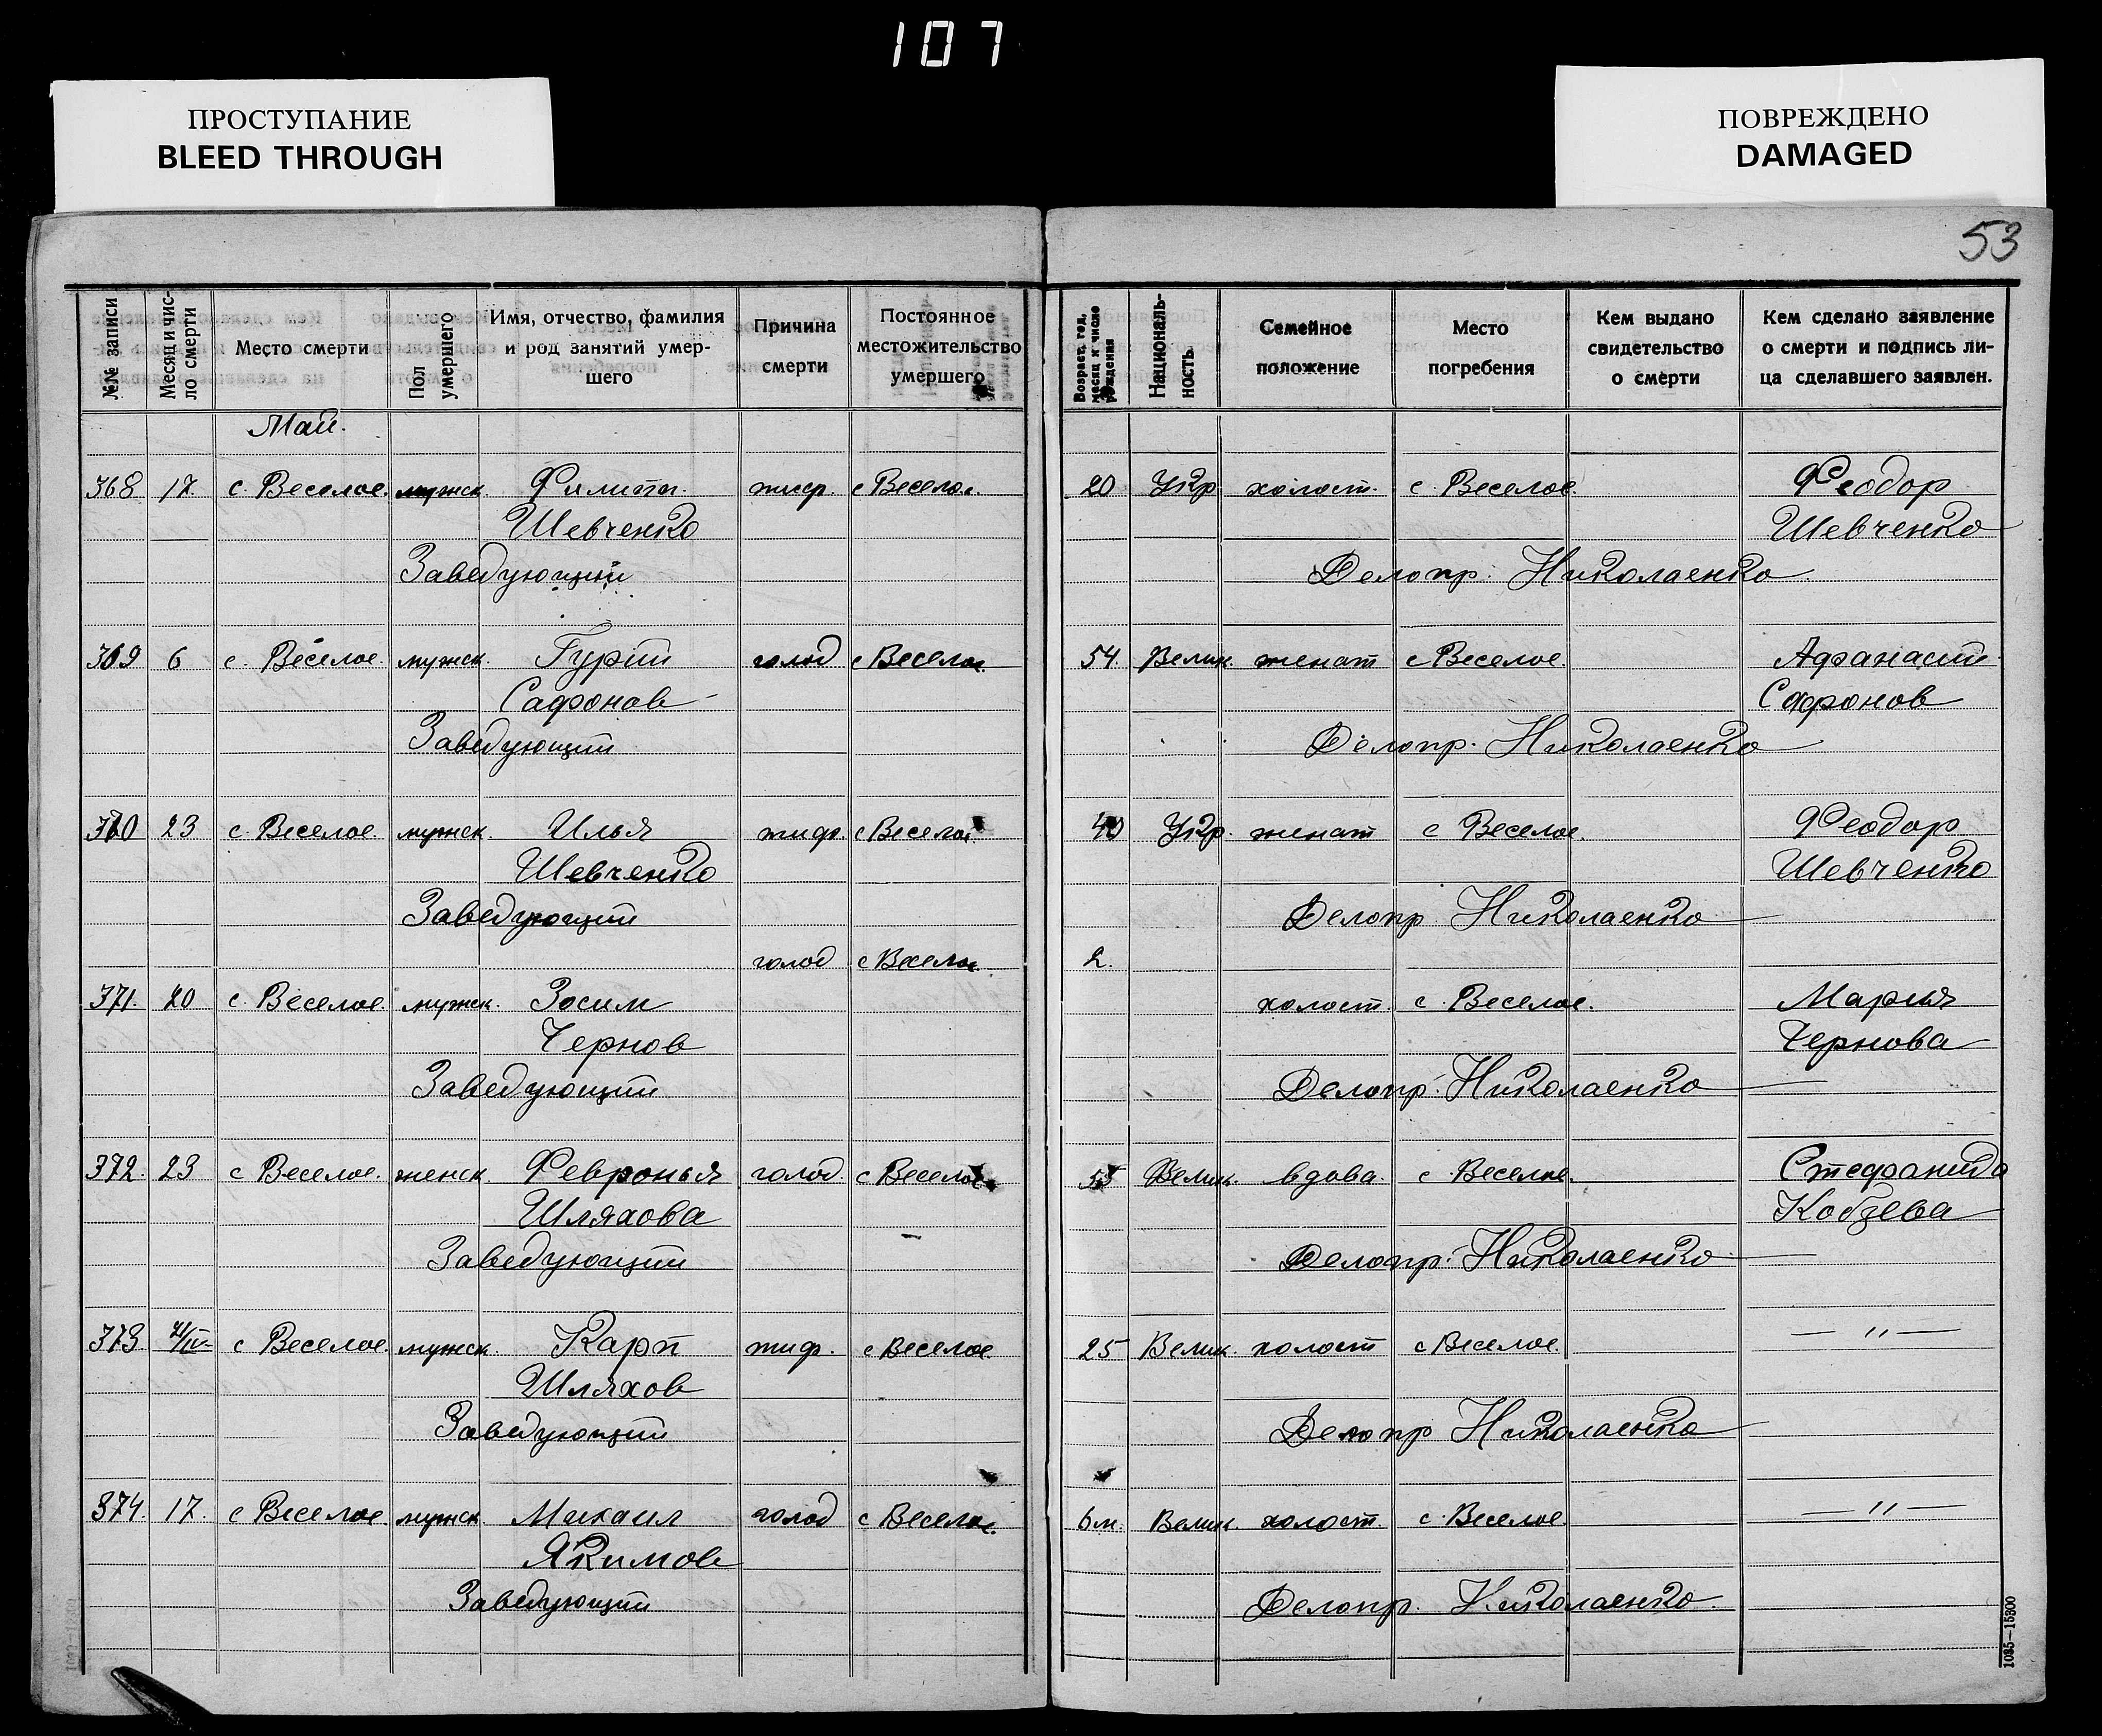 107
ПРОСТУПАНИЕ
BLEED THROUGH
ПОВРЕЖДЕНО
DAMAGED
53
№№ записи
Месяц и чис-
ло смерти
Место смерти
Пол
умершего
Имя, отчество, фамилия
и род занятий умер-
шего
Причина
смерти
Постоянное
местожительство
умершего
Возраст, год,
месяц и число
рождения
Националь-
ность
Семейное
положение
Место
погребения
Кем выдано
свидетельство
о смерти
Кем сделано заявление
о смерти и подпись ли-
ца сделавшего заявлен.
Май.
368 17. с. Веселое. мужск. Филипп. тиф. с Веселое. 20 Укр холост. с. Веселое. Феодор
Шевченко Шевченко
Заведующий Делопр. Николаенко
369 6 с. Веселое. мужск. Гурий голод с Веселое. 54. Велик. женат с Веселое. Афанасий
Сафонов Сафонов
Заведующий Делопр. Николаенко
370 23 с. Веселое мужск. Илья тиф. с Веселое. 40 Укр. женат с Веселое. Феодор
Шевченко Шевченко
Заведующий Делопр Николаенко
голод с Веселое. 2.
371. 20 с. Веселое. мужск. Зосим холост. с. Веселое. Мария
Чернов Чернова
Заведующий Делопр. Николаенко
372. 23 с Веселое. женск. Февронья голод. с Веселое. 55 Велик. вдова. с Веселое. Стефанида
Шляхова Кобзева
Заведующий Делопр. Николаенко
373. /IV с Веселое. мужск. Карп тиф. с Веселое. 25 Велик. холост с Веселое. — " —
Шляхов
Заведующий Делопр Николаенко
374. 17. с Веселое. мужск. Михаил голод с Веселое. 6 м. Велик. холост. с. Веселое. — " —
Якимов
Заведующий Делопр. Николаенко.
1085—15300